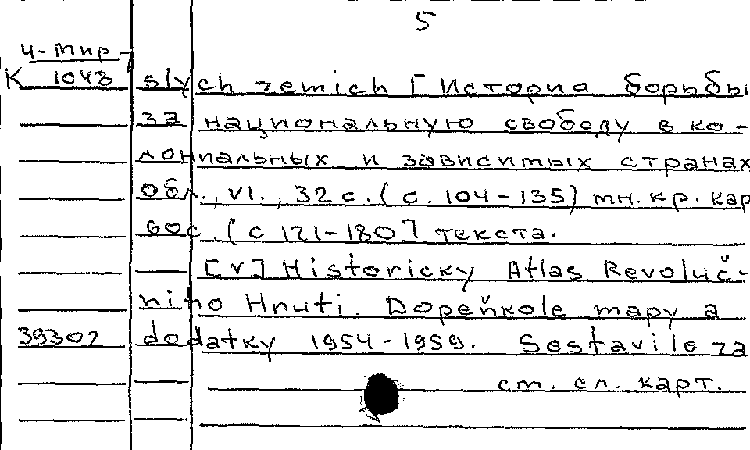 5
4-мир
К 1048
slych zemich [История борьбы
за национальную свободу в ко-
лониальных и зависимых странах
обл., VI., 32 с. (с. 104-135) мн. кр. кар
60 с. (с 121-180] текста.
[V] Historicky Atlas Revoluč-
niho Hnuti. Dopeňkole mapy a
39302 dodatky 1954-1959. Sestavile za
см. сл. карт.